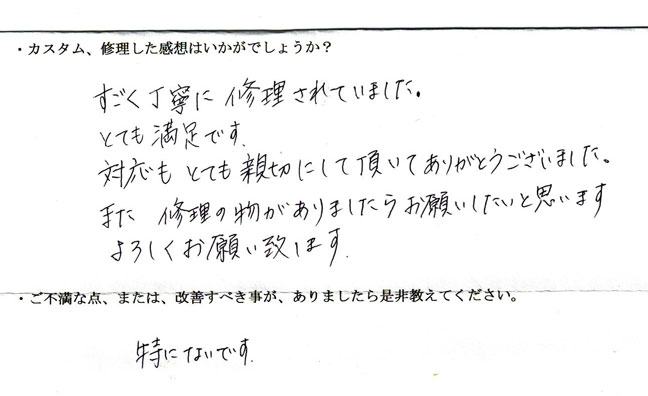 ・カスタム、修理した感想はいかがでしょうか？
すごく丁寧に修理されていました。
とても満足です.
対応もとても親切にして頂いてありがとうございました。
また 修理の物がありましたらお願いしたいと思います
よろしくお願い致します.
・ご不満な点、または、改善すべき事が、ありましたら是非教えてください。
特にないです.